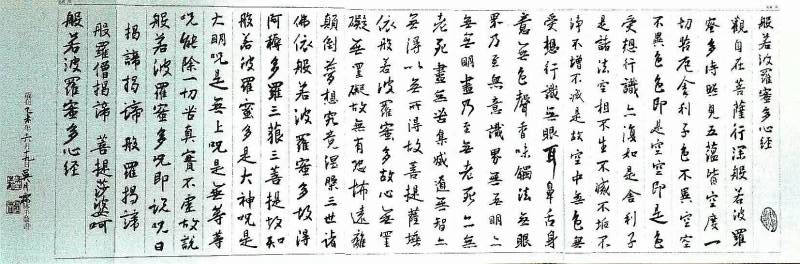 般若波羅蜜多心経
觀自在菩薩行深般若波羅
蜜多時照見五蘊皆空度一
切苦厄舍利子色不異空空
不異色色即是空空即是色
受想行識亦復如是舍利子
是諸法空相不生不滅不垢不
淨不增不減是故空中無色無
受想行識無眼耳鼻舌身
意無色聲香味觸法無眼
界乃至無意識界無無明亦
無無明盡乃至無老死亦無
老死盡無苦集滅道無智亦
無得以無所得故菩提薩埵
依般若波羅蜜多故心無罣
礙無罣礙故無有恐怖遠離
顛倒夢想究竟涅槃三世諸
佛依般若波羅蜜多故得
阿耨多羅三藐三菩提故知
般若波羅蜜多是大神呪是
大明呪是無上呪是無等等
呪能除一切苦真實不虛故說
般若波羅蜜多呪即說呪曰
揭諦揭諦 般羅揭諦
般羅僧揭諦 菩提莎婆訶
般若波羅蜜多心経